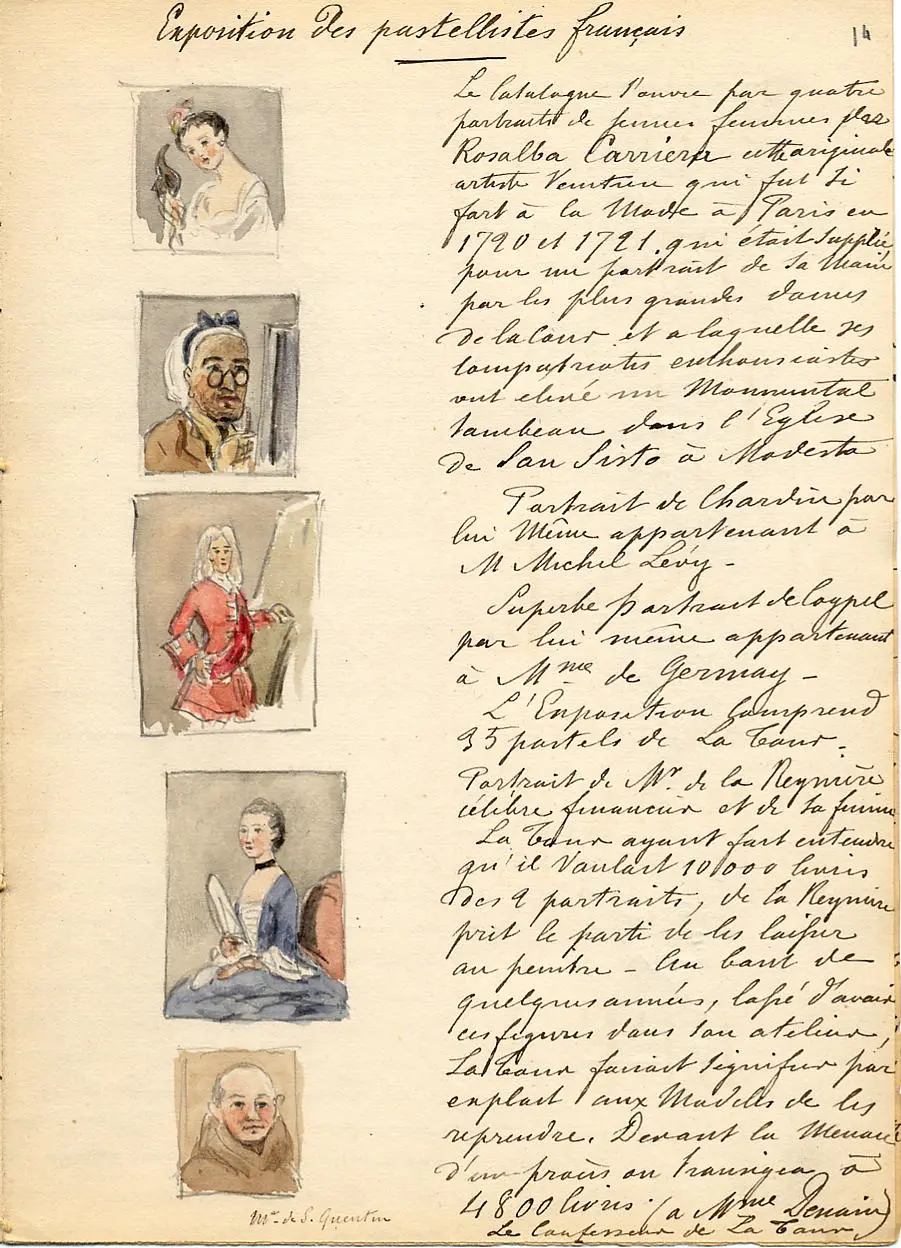 Exposition des pastellistes français
14
Le Catalogue s'ouvre par quatre
portraits de jeunes femmes par
Rosalba Carriera cette originale
artiste Venitienne qui fut si
fort à la Mode à Paris en
1720 et 1721. qui était suppliée
pour un portrait de sa Main
par les plus grandes dames
de la Cour et a laquelle ses
compatriotes enthousiastes
ont elevé un Monumental
tombeau dans l'Eglise
de San Sisto à Modesta
Portrait de Chardin par
lui Même appartenant à
M Michel Lévy -
Superbe portrait de Coypel
par lui même appartenant
à Mme de Germay -
L'Exposition comprend
35 pastels de La Tour -
Portrait de Mr. de la Reynière
célèbre financier et de sa femme
La Tour ayant fait entendre
qu'il Voulait 10,000 livres
des 2 portraits, de la Reynière
prit le parti de les laisser
au peintre - Au bout de
quelques années, lassé d'avoir
ces figures dans son atelier,
La Tour faisait signifier par
exploit aux Modèles de les
reprendre. Devant la Menace
d'un procès on transigea à
4800 livres. (a Mme Denain)
Le Confesseur de La Tour
Mr. de S. Quentin